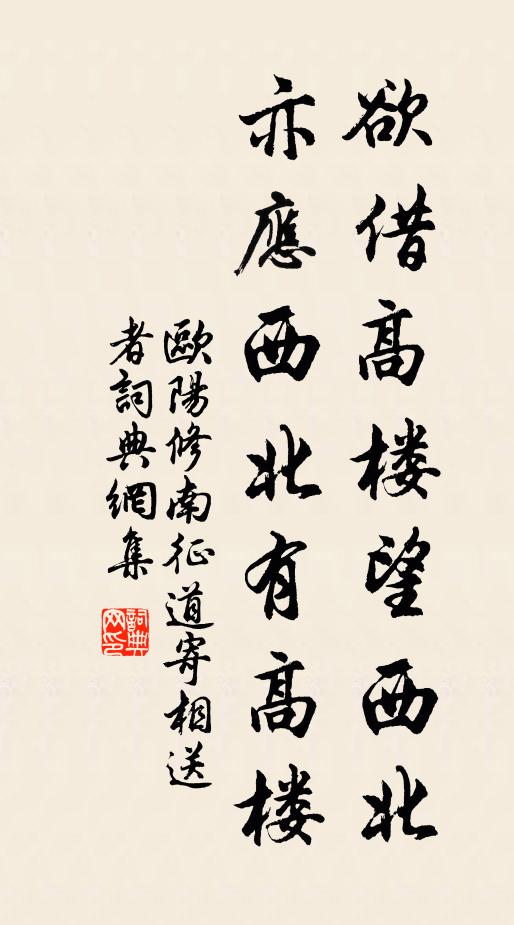 欲借高楼望西北
亦應西北有高楼
歐陽修南征道寄相送
者詞典網集
詞典
网印